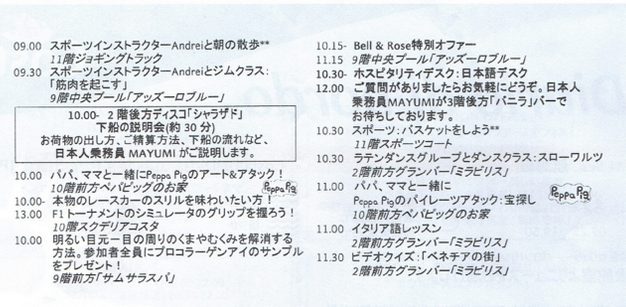 09.00 スポーツインストラクターAndreiと朝の散歩**
11階ジョギングトラック
09.30 スポーツインストラクターAndreiとジムクラス:
「筋肉を起こす」
9階中央プール「アッズーロブルー」
10.00- 2階後方ディスコ「シャラザド」
下船の説明会(約30分)
お荷物の出し方、ご精算方法、下船の流れなど、
日本人乗務員MAYUMIがご説明します。
10.00 パパ、ママと一緒にPeppa Pigのアート&アタック!
10階前方ペパピッグのお家
Peppa Pig
10.00- 本物のレースカーのスリルを味わいたい方!
13.00 F1トーナメントのシミュレータのグリップを握ろう!
10階スクデリアコスタ
10.00 明るい目元ー目の周りのくまやむくみを解消する
方法。参加者全員にプロコラーゲンアイのサンプル
をプレゼント!
9階前方「サムサラスパ」
10.15- Bell & Rose特別オファー
11.15 9階中央プール「アッズーロブルー」
10.30- ホスピタリティデスク:日本語デスク
12.00 ご質問がありましたらお気軽にどうぞ。日本人
乗務員MAYUMIが3階後方「バニラ」バーで
お待ちしております。
10.30 スポーツ:バスケットをしよう**
11階スポーツコート
10.30 ラテンダンスグループとダンスクラス:スローワルツ
2階前方グランバー「ミラビリス」
11.00 パパ、ママと一緒に
Peppa Pigのパイレーツアタック:宝探し
10階前方ペパピッグのお家
Peppa Pig
11.00 イタリア語レッスン
2階前方グランバー「ミラビリス」
11.30 ビデオクイズ:「ベネチアの街」
2階前方グランバー「ミラビリス」